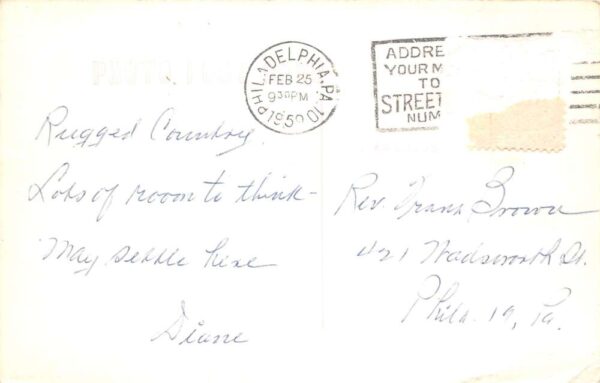 PHOTO
PHILADELPHIA, PA. 10
FEB 25
9 30 PM
1950
ADDRE
YOUR M
TO
STREET
NUM
Rugged Country.
Lots of rooom to think -
May settle here
Diane
Rev. Frank Brown
421 Wadsworth St.
Phila. 19, Pa.